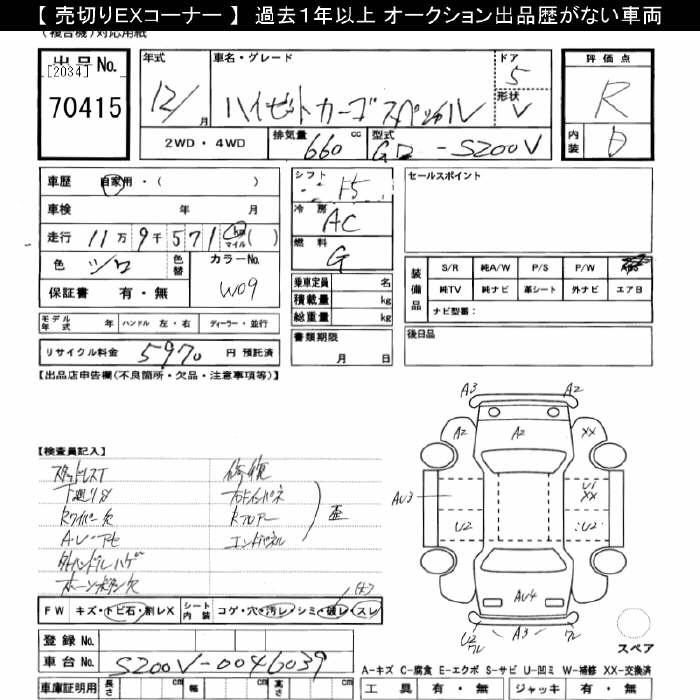 【 売切りEXコーナー 】 過去１年以上 オークション出品歴がない車両
(複合機)対応用紙
出品 No.
[2034]
70415
年式
12/
月
車名・グレード
ハイゼットカーゴ スペシャル
ドア
5
形状
V
2WD・4WD
排気量
660
cc
型式
GD - S200V
評価点
R
内装
D
車歴
自家用・( )
車検 年 月
走行 11万9千571 km マイル ( )
色 シロ
色替
カラーNo.
W09
保証書 有・無
シフト
F5
冷房
AC
燃料
G
乗車定員 名
積載量 kg
総重量 kg
セールスポイント
装備品
S/R 純A/W P/S P/W ABS
純TV 純ナビ 革シート 外ナビ エアB
ナビ型番：
モデル年式 年 ハンドル 左・右 ディーラー・並行
リサイクル料金 5970 円 預託済
書類期限
月 日
後日品
【出品店申告欄(不良箇所・欠品・注意事項等)】
【検査員記入】
スタッドレスT
下廻りサビ
Rワイパー欠
A・V・アセ
外ハンドルハゲ
ホーンボタン欠
修復
右Frインパネ
Rフロアー
エンドパネル
歪
FW キズ・トビ石・割レX
シート内装 コゲ・穴・汚レ・シミ・破レ・スレ
登録 No.
車台 No. S200V-0046039
車庫証明用 長さ cm 幅 cm 高さ cm
A3
A2
A2
A2
XX
AU3
U1
XX
U2
U2
AU4
U2
A3
スペア
A-キズ C-腐食 E-エクボ S-サビ U-凹ミ W-補修 XX-交換済
工具 有・無 ジャッキ 有・無